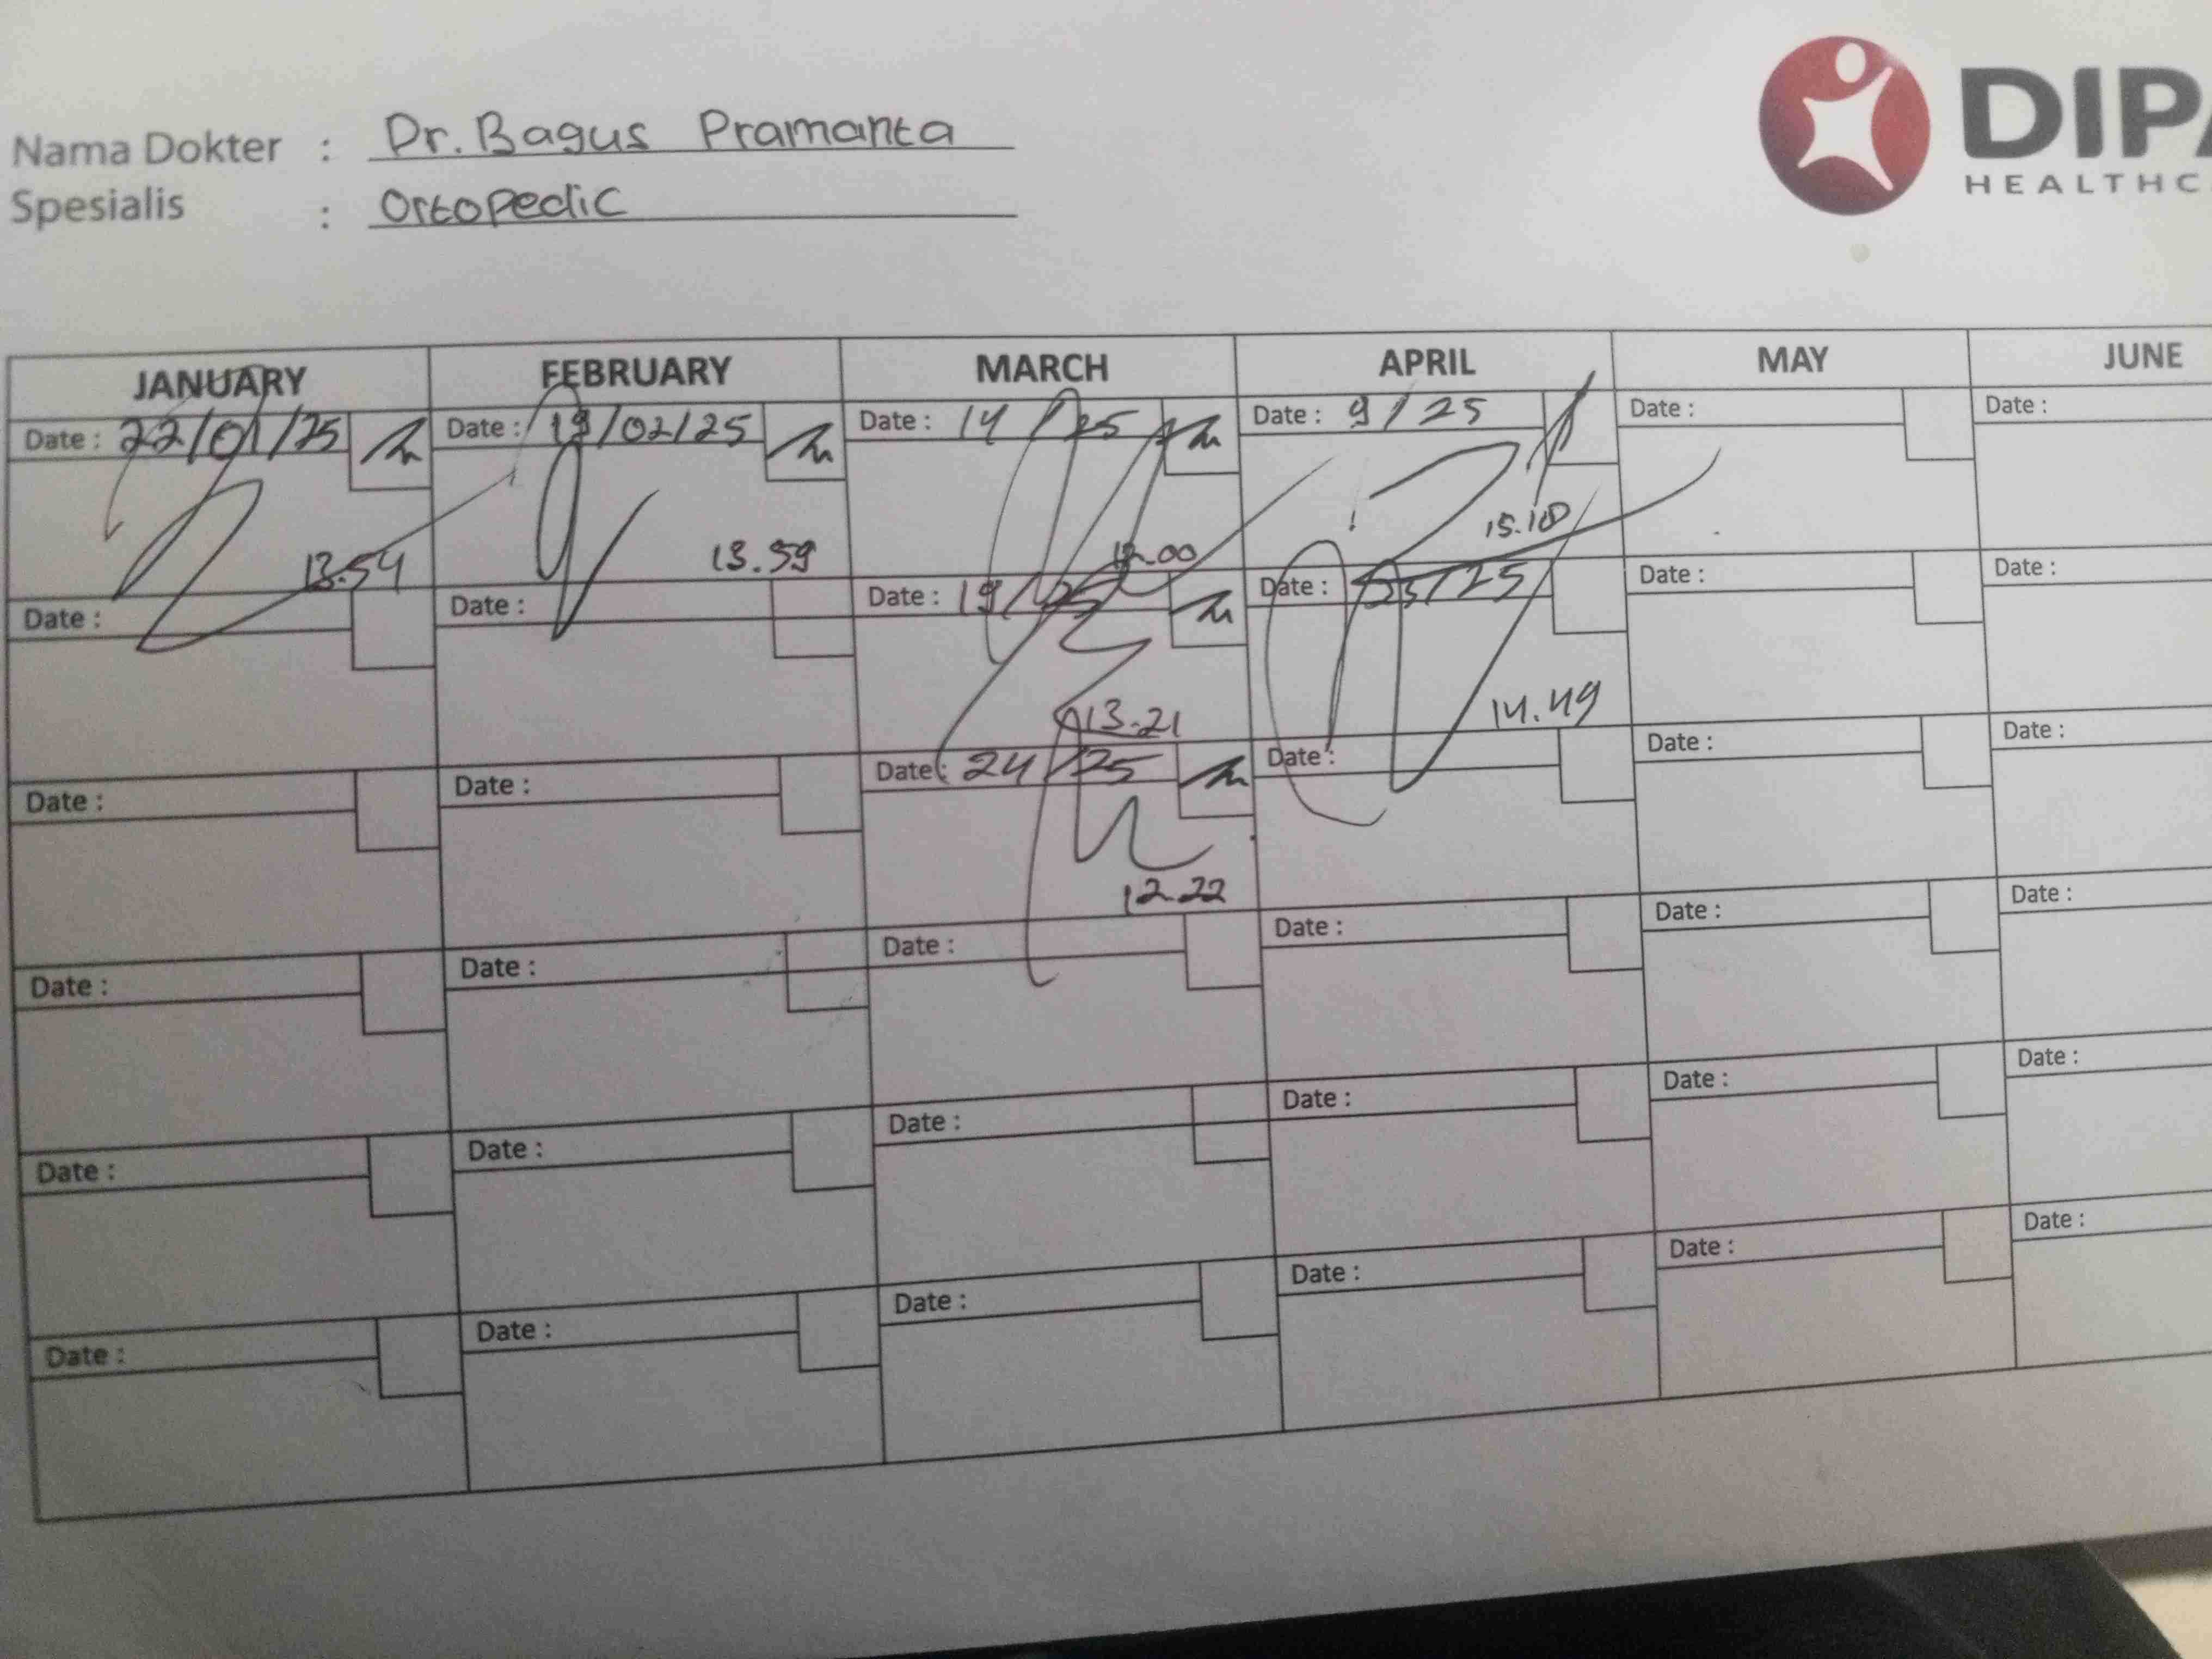 Nama Dokter : Dr. Bagus Pramanta
Spesialis : Ortopedic
DIPA
HEALTHC
JANUARY FEBRUARY MARCH APRIL MAY JUNE
Date : 22/01/25 Date : 19/02/25 Date : 14 / 25 Date : 9 / 25 Date : Date :
13.54 13.59 12.00 15.10
Date : Date : Date : 19/25 Date : /25 Date : Date :
13.21 14.49
Date : Date : Date : 24/25 Date : Date : Date :
12.22
Date : Date : Date : Date : Date : Date :
Date : Date : Date : Date : Date : Date :
Date : Date : Date : Date : Date : Date :